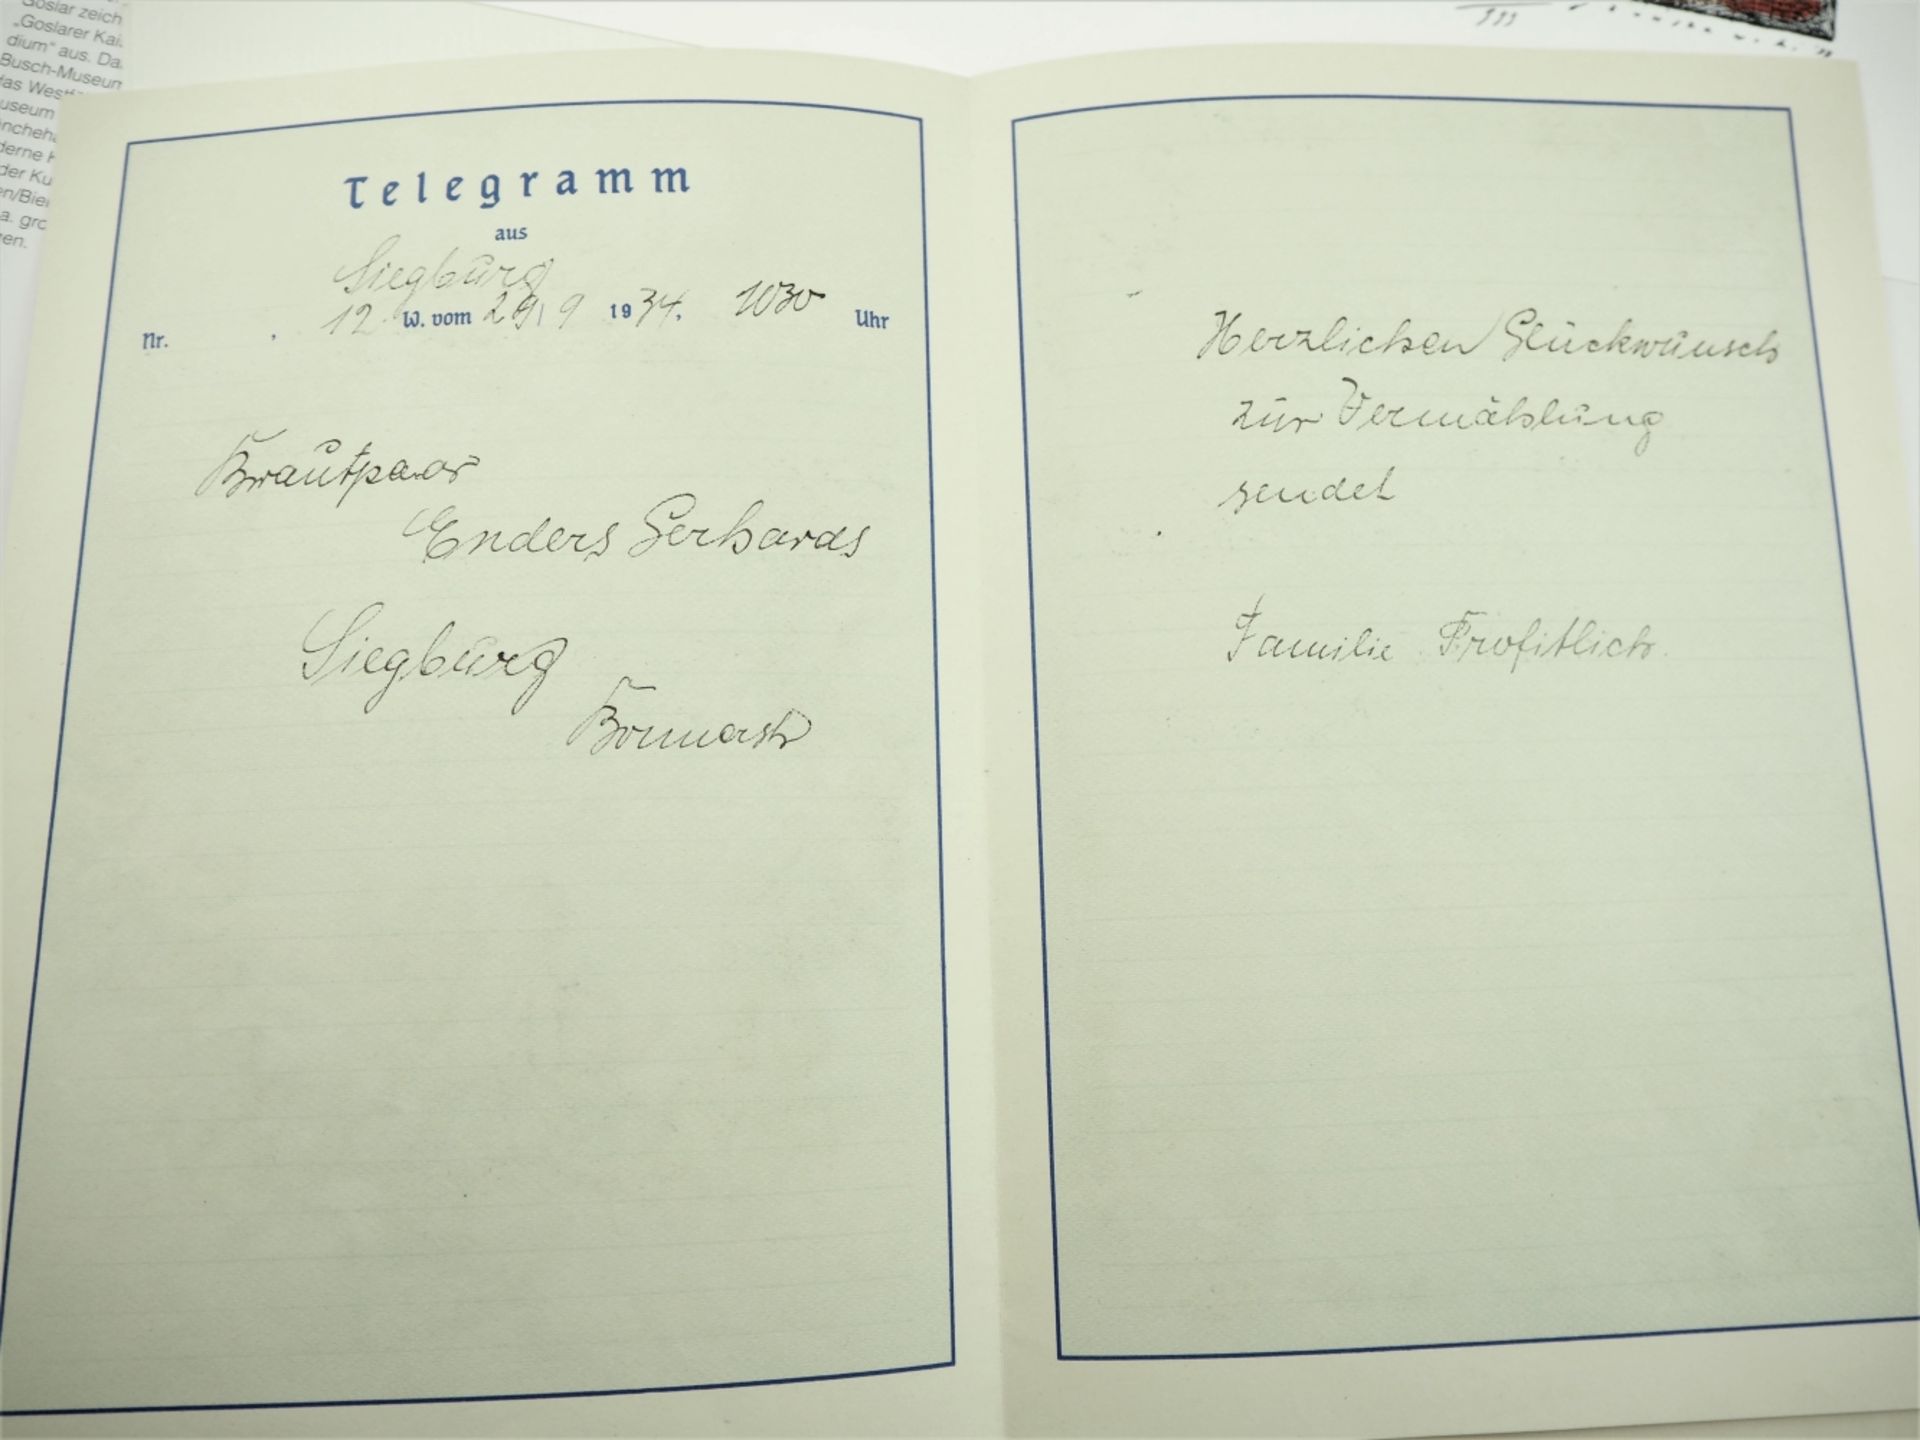 Goslar zeich
„Goslarer Kai
dium" aus. Da
Busch-Museum
das West
useum
derne K
der Ku
en/Bie
a. gro
en.
Telegramm
aus
Siegburg
Nr. 12 W. vom 29 9 1934. 1030 Uhr
Brautpaar
Enders Gerhards
Siegburg
Bonnerstr
Herzlichen Glückwunsch
zur Vermählung
sendet
Familie Profitlich.